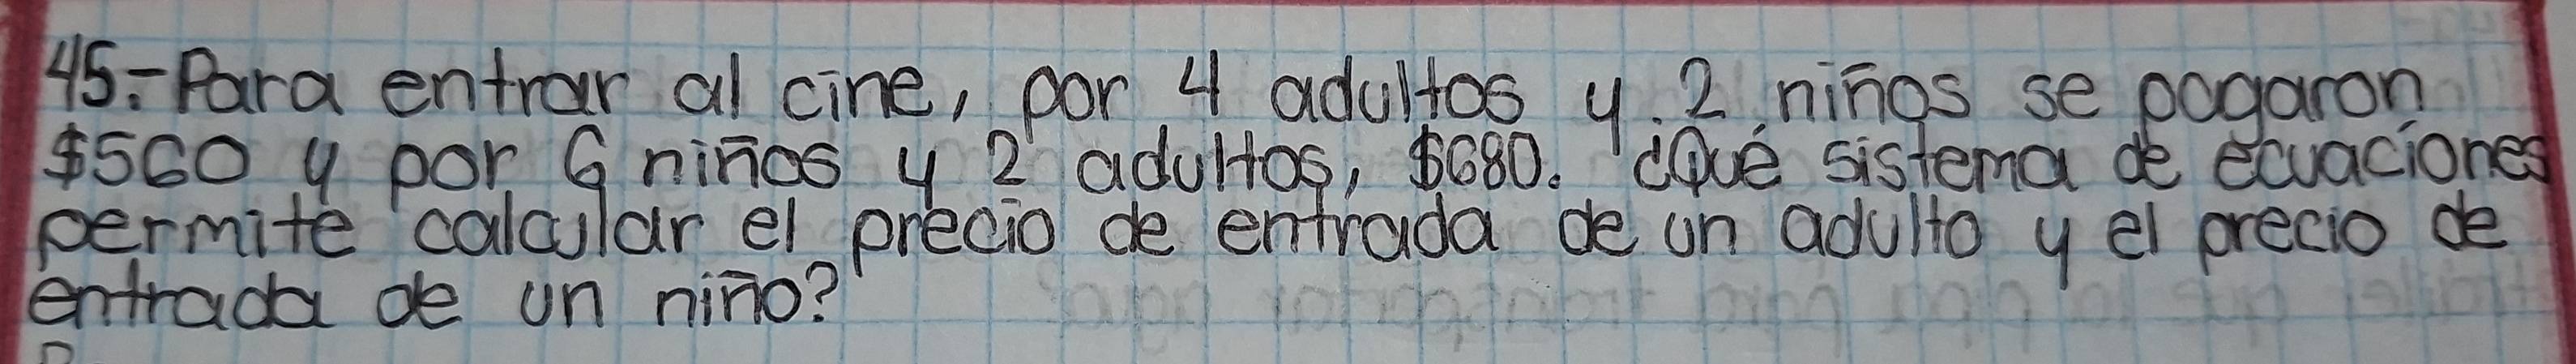 45.- Para entrar al cine, por 4 adultos y 2 niños se pagaron
$560 y por 6 niños y 2 adultos, $680. ¿Qué sistema de ecuaciones
permite calcular el precio de entrada de un adulto y el precio de
entrada de un niño?